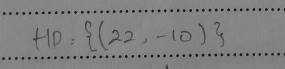 HP: {(22, -10)}